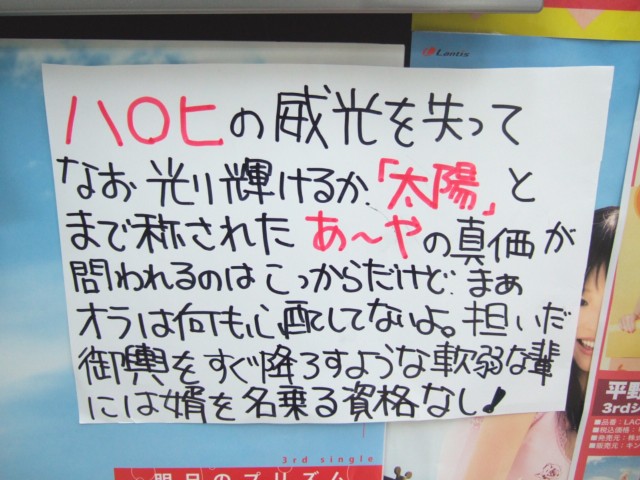 Lantis
ハロヒの威光を失って
なお光り輝けるか、「太陽」と
まで称されたあ〜やの真価が
問われるのはこっからだけど、まぁ
オラは何も心配してないよ。担いだ
御輿をすぐ降ろすような軟弱な輩
には婿を名乗る資格なし!
3rd single
明日のプリズム
平野
3rdシ
■品番:LAC
■税込価格:
■発売元:株式
■販売元:キン